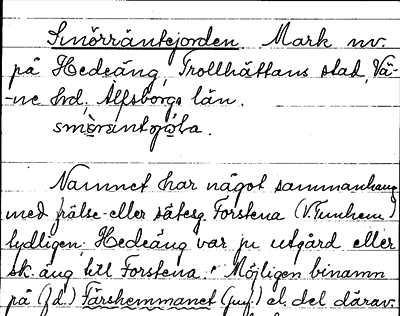 Smörräntejorden Mark nv.
på Hedeäng, Trollhättans stad, Vä-
-ne hd, Älfsborgs län.
Namnet har något sammanhang
med frälse- eller sätesg. Forstena (V. Tunhem)
tydligen. Hedeäng var ju utgård eller
sk. äng till Forstena. Möjligen binamn
på (f d.) Färshemmanet (juf.) el. del därav.